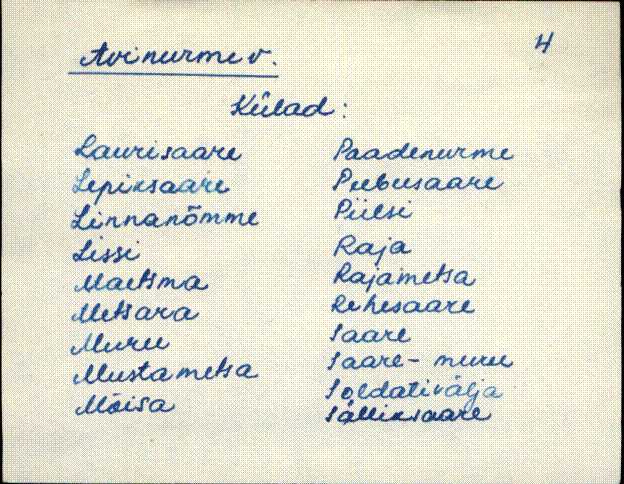 Avinurme v.
4
Külad:
Laurisaare
Lepiksaare
Linnanõmme
Lissi
Maetsma
Metsara
Muru
Mustametsa
Mõisa
Paadenurme
Peebusaare
Piilsi
Raja
Rajametsa
Rehesaare
Saare
Saare-muru
Soldativälja
Sälliksaare